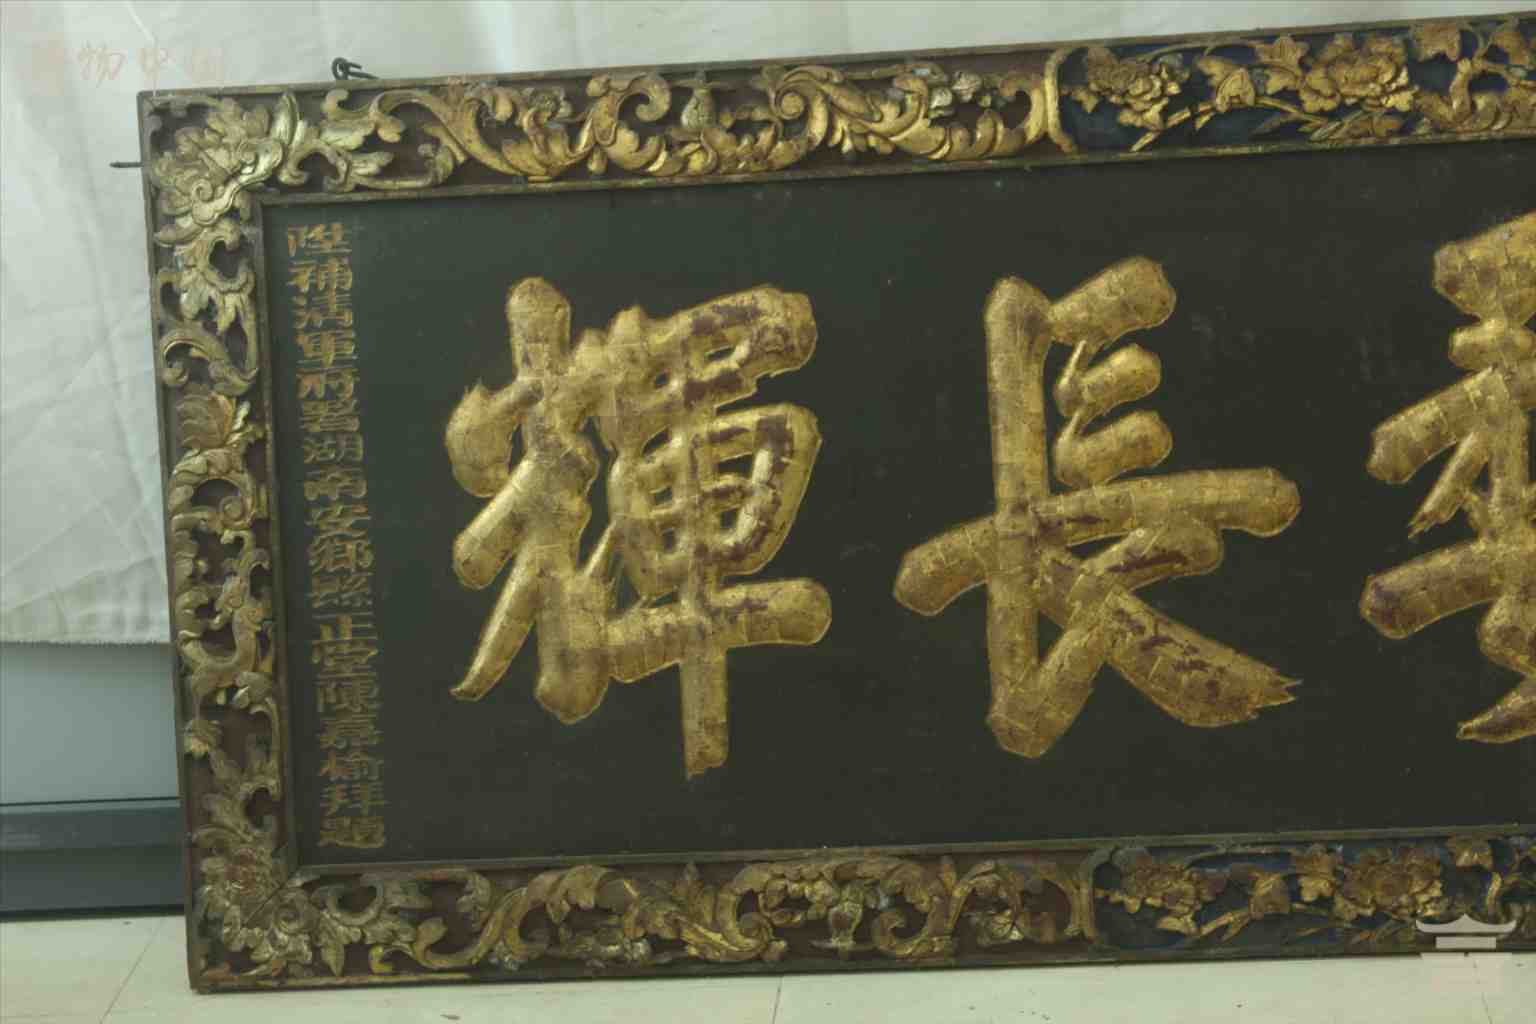 長輝
陞補清軍府署湖南安鄉縣正堂陳嘉榆拜題
物中国